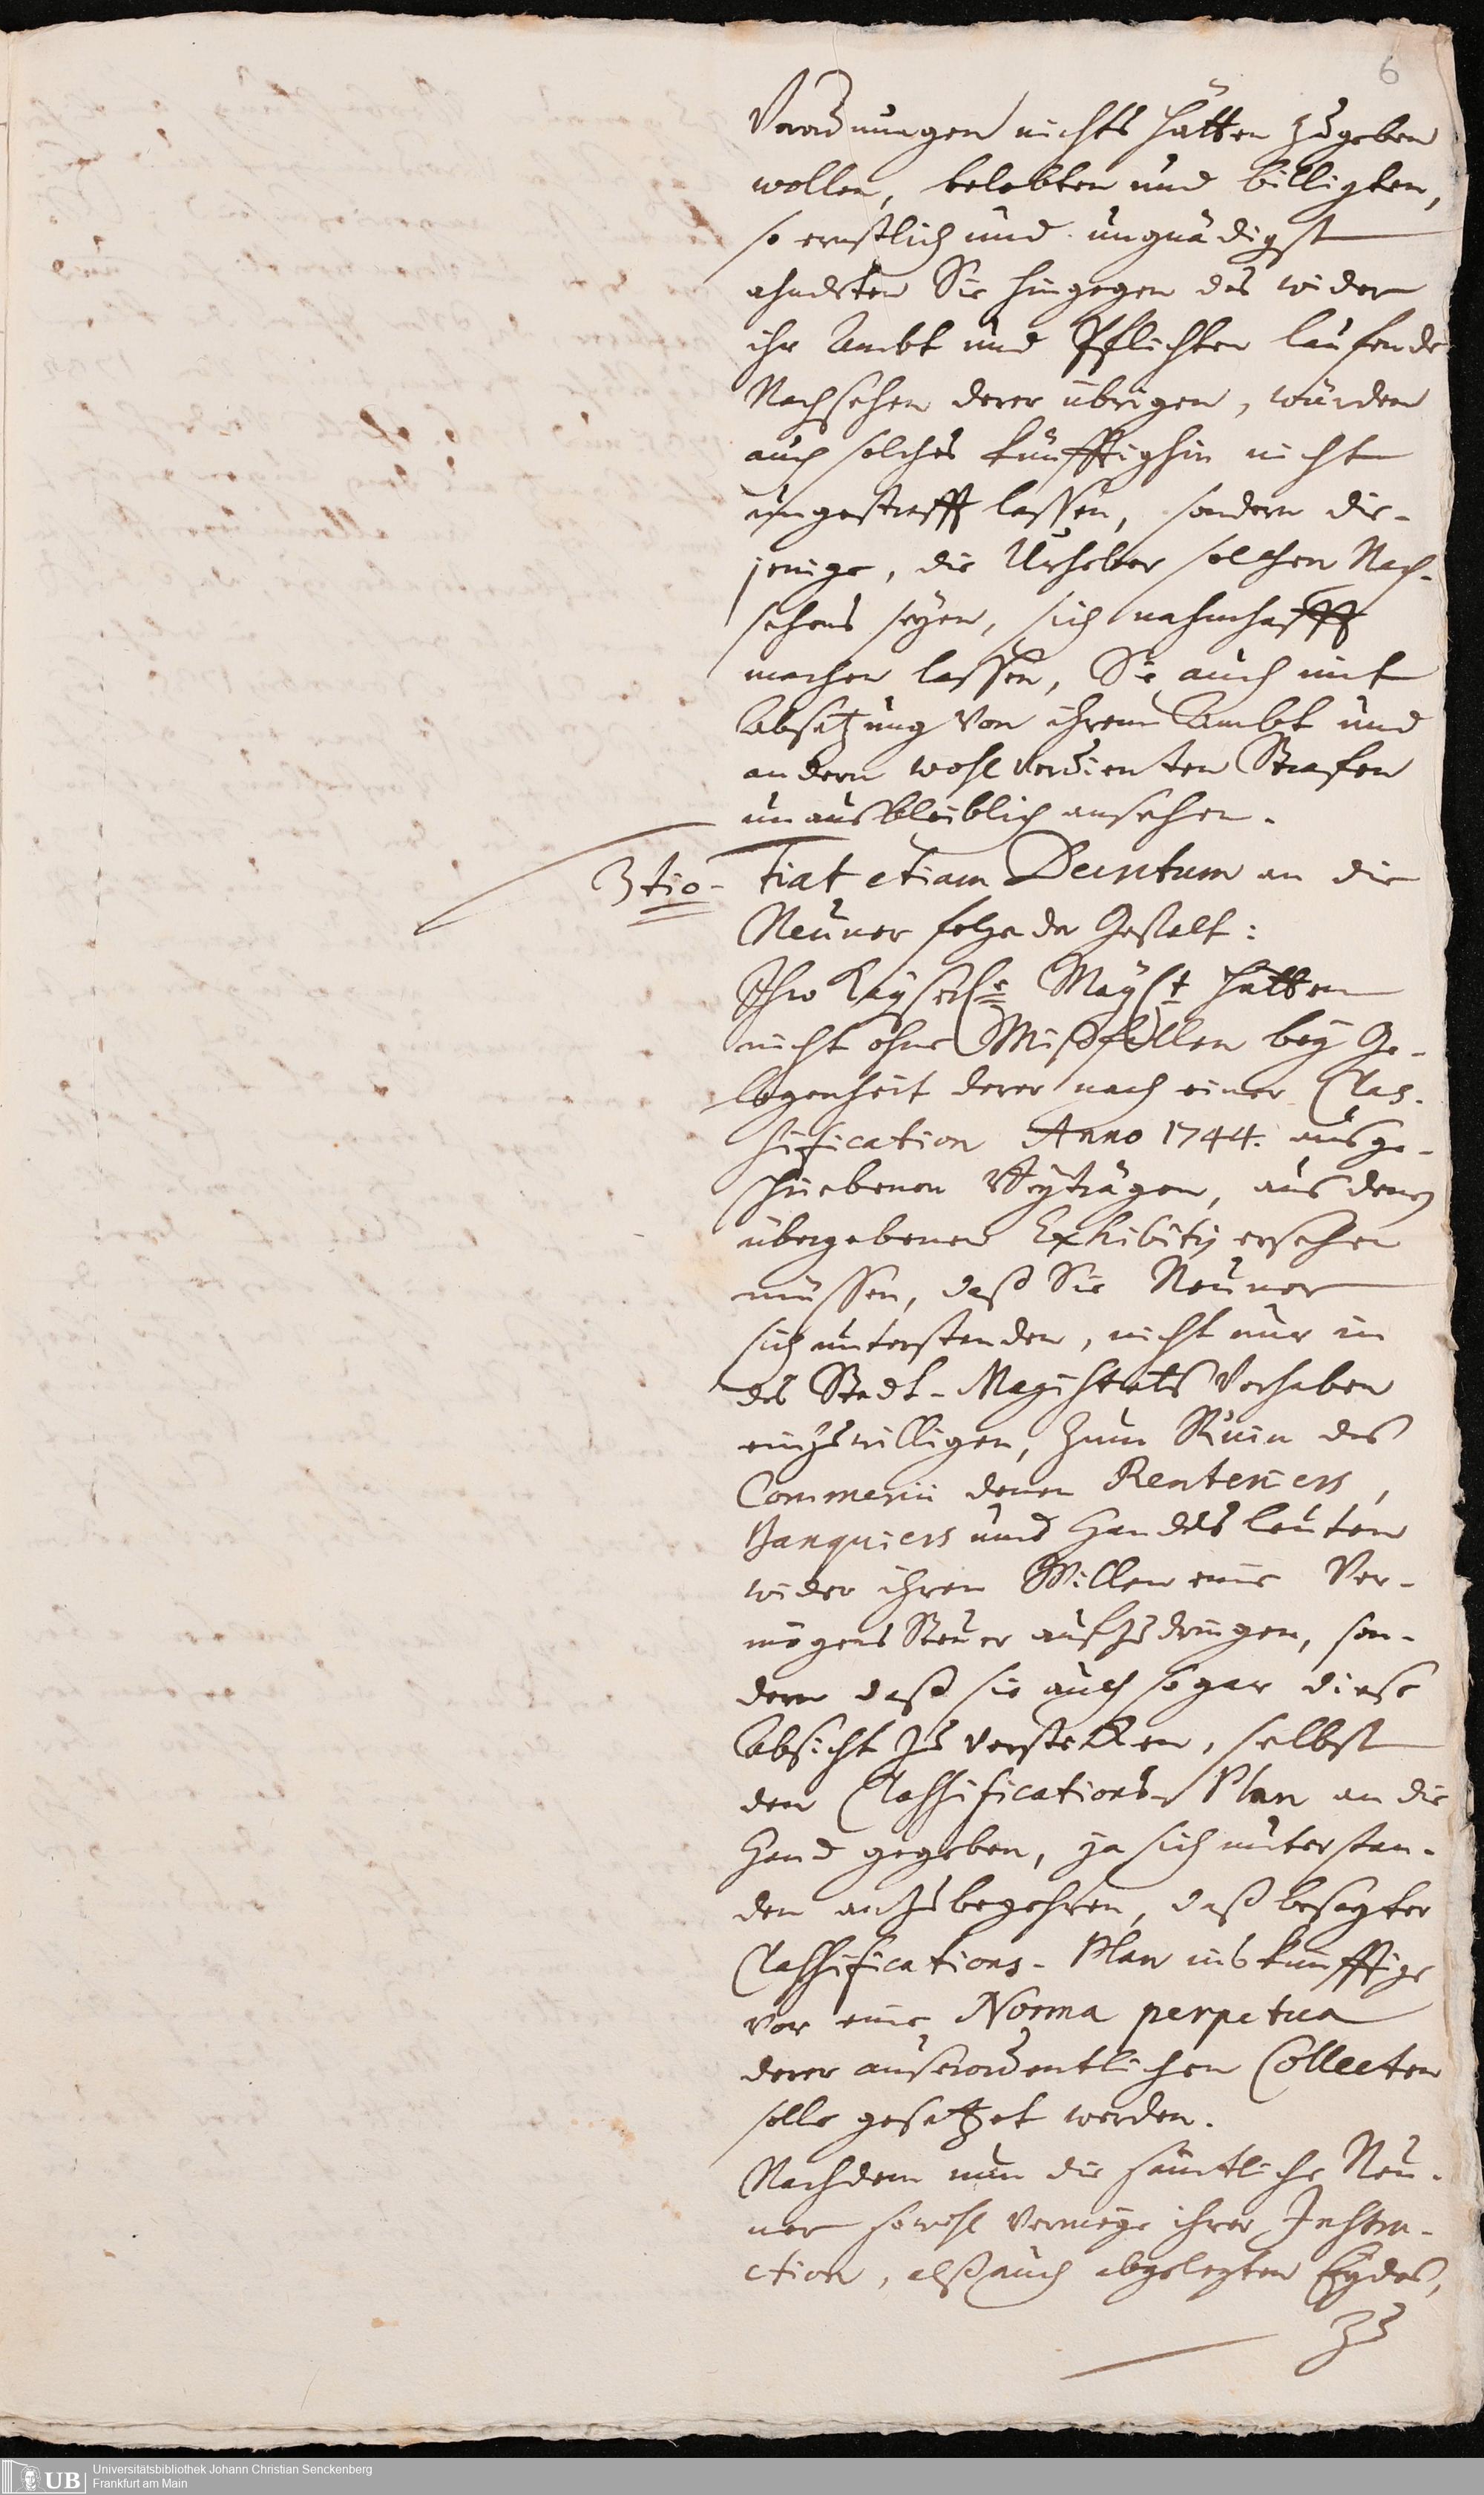 6
Verordnungen nichts hätten zugeben
wollen, belobten und billigten,
so ernstlich und ungnädigst
ahndeten Sie hingegen des wider
ihr Ambt und Pflichten laufende
Nachsehen derer übrigen, würden
auch solches künfftighin nicht
ungestrafft lassen, sondern die-
jenige, die Urheber solchen Nach-
sehens seyen, sich nahmhafft
machen lassen, Sie auch mit
Absetzung von ihrem Ambt und
andern wohl verdienten Strafen
unausbleiblich ansehen.
3tio- Fiat etiam Decretum an die
Neuner folgender Gestalt:
Ihro Kayserle Mayst hätten
nicht ohne Mißfallen bey Ge-
legenheit derer nach einer Clas-
sification Anno 1744. ausge-
schriebenen Beyträgen, aus denen
übergebenen Exhibitis ersehen
müssen, daß Sie Neuner
sich unterstanden, nicht nur in
des Stadt-Magistrats Vorhaben
einzuwilligen, zum Ruin des
Commercii denen Renteniers,
Banquiers und Handelsleuten
wider ihren Willen eine Ver-
mögens Steuer aufzudringen, son-
dern daß sie auch sogar diese
Absicht zu verstecken, selbst
den Classifications-Plan an die
Hand gegeben, ja sich unterstan-
den anzubegehren, daß besagter
Classifications-Plan ins künfftige
vor eine Norma perpetua
derer ausserordentlichen Collecten
solle gesetzet werden.
Nachdem nun die sämtliche Neu-
ner sowohl vermöge ihrer Instru-
ction, alß auch abgelegten Eydes,
zu
UB Universitätsbibliothek Johann Christian Senckenberg
Frankfurt am Main